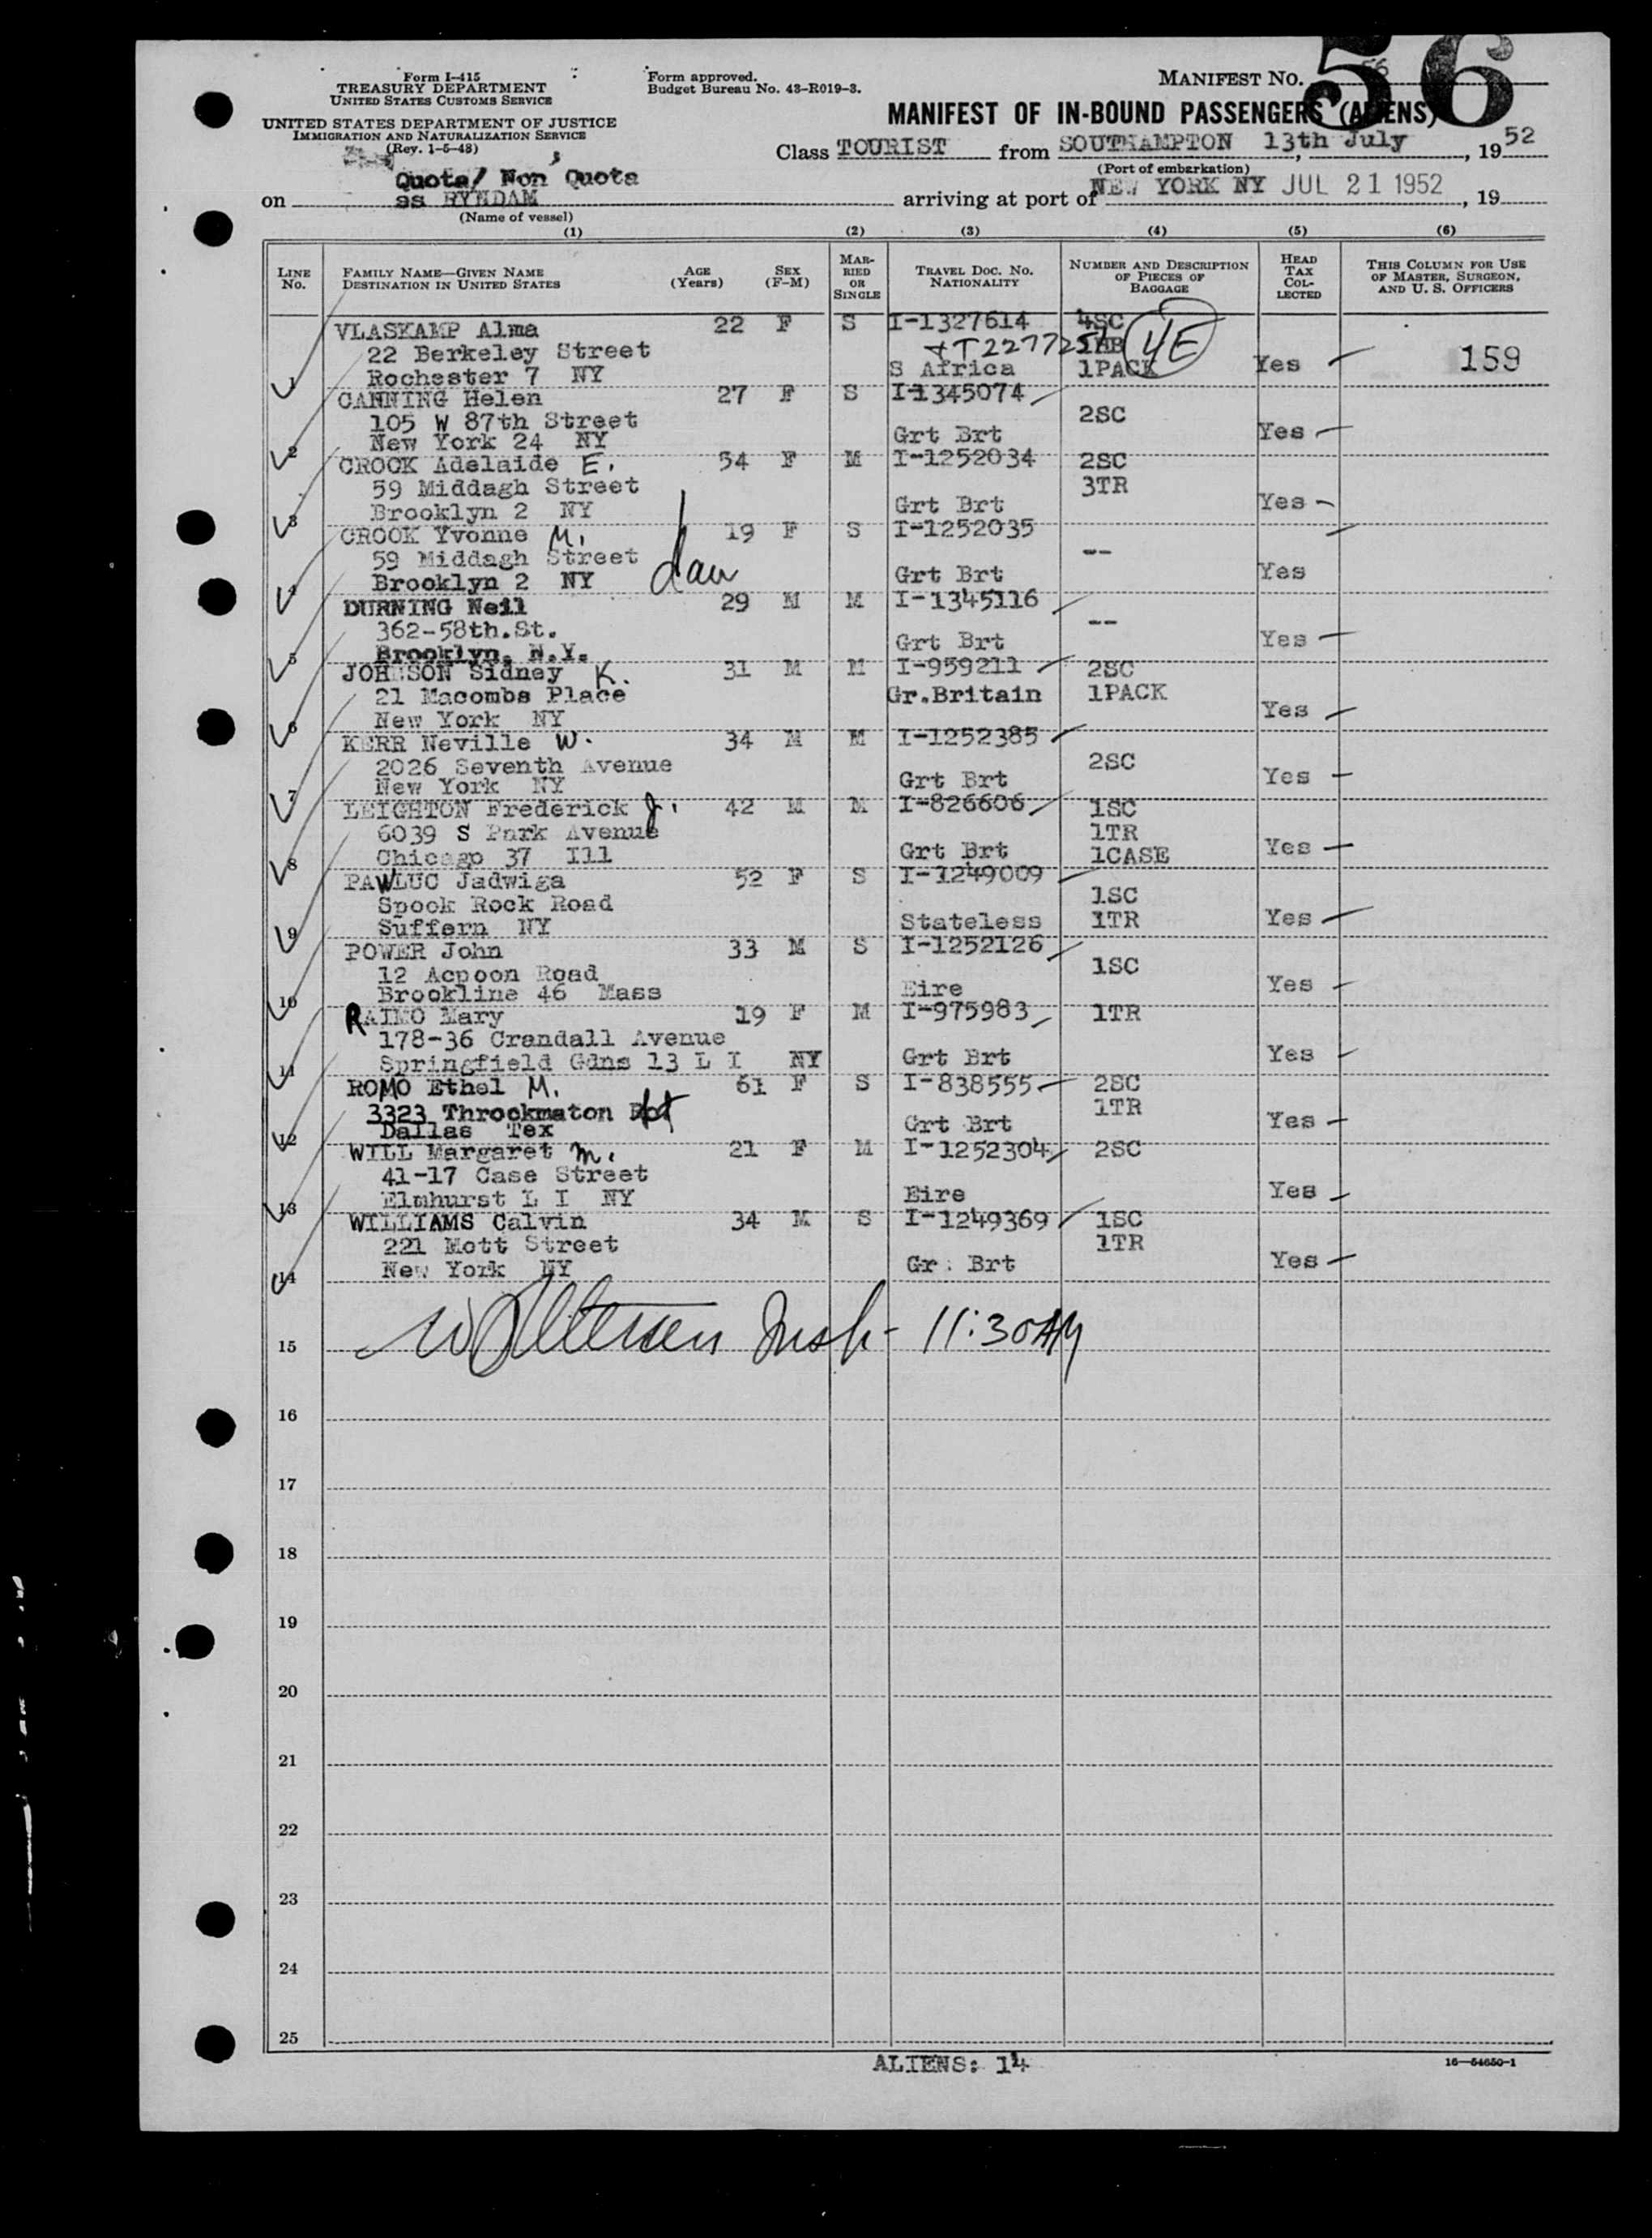 Form I-415
TREASURY DEPARTMENT
UNITED STATES CUSTOMS SERVICE
UNITED STATES DEPARTMENT OF JUSTICE
IMMIGRATION AND NATURALIZATION SERVICE
(Rev. 1-5-48)
Form approved.
Budget Bureau No. 43-R019-3.
MANIFEST NO. 56
56
MANIFEST OF IN-BOUND PASSENGERS (ALIENS)
Class TOURIST from SOUTHAMPTON 13th July, 1952
(Port of embarkation)
Quota/ Non Quota
on ss RYNDAM arriving at port of NEW YORK NY JUL 21 1952, 19
(Name of vessel)
(1) (2) (3) (4) (5) (6)
LINE No. FAMILY NAME—GIVEN NAME DESTINATION IN UNITED STATES AGE (Years) SEX (F-M) MARRIED OR SINGLE TRAVEL DOC. NO. NATIONALITY NUMBER AND DESCRIPTION OF PIECES OF BAGGAGE HEAD TAX COLLECTED THIS COLUMN FOR USE OF MASTER, SURGEON, AND U. S. OFFICERS
VLASKAMP Alma 22 F S I-1327614 4SC
22 Berkeley Street 4E
1 Rochester 7 NY S Africa 1PACK Yes 159
CANNING Helen 27 F S I-1345074
105 W 87th Street 2SC
2 New York 24 NY Grt Brt Yes
CROOK Adelaide E. 54 F M I-1252034 2SC
59 Middagh Street 3TR
3 Brooklyn 2 NY Grt Brt Yes
CROOK Yvonne M. 19 F S I-1252035
59 Middagh Street --
4 Brooklyn 2 NY dau Grt Brt Yes
DURNING Neil 29 M M I-1345116
362-58th.St. --
5 Brooklyn. N.Y. Grt Brt Yes
JOHNSON Sidney K. 31 M M I-959211 2SC
21 Macombs Place Gr.Britain 1PACK
6 New York NY Yes
KERR Neville W. 34 M M I-1252385
2026 Seventh Avenue 2SC
7 New York NY Grt Brt Yes
LEIGHTON Frederick J. 42 M M I-826606 1SC
6039 S Park Avenue 1TR
8 Chicago 37 Ill Grt Brt 1CASE Yes
PAWLUC Jadwiga 52 F S I-1249009
Spook Rock Road 1SC
9 Suffern NY Stateless 1TR Yes
POWER John 33 M S I-1252126
12 Acpoon Road 1SC
10 Brookline 46 Mass Eire Yes
RAIMO Mary 19 F M I-975983 1TR
178-36 Crandall Avenue
11 Springfield Gdns 13 L I NY Grt Brt Yes
ROMO Ethel M. 61 F S I-838555 2SC
3323 Throckmaton 1TR
12 Dallas Tex Grt Brt Yes
WILL Margaret M. 21 F M I-1252304 2SC
41-17 Case Street
13 Elmhurst L I NY Eire Yes
WILLIAMS Calvin 34 M S I-1249369 1SC
221 Mott Street 1TR
14 New York NY Gr. Brt Yes
15 11:30AM
16
17
18
19
20
21
22
23
24
25
ALIENS: 14
16—54650-1